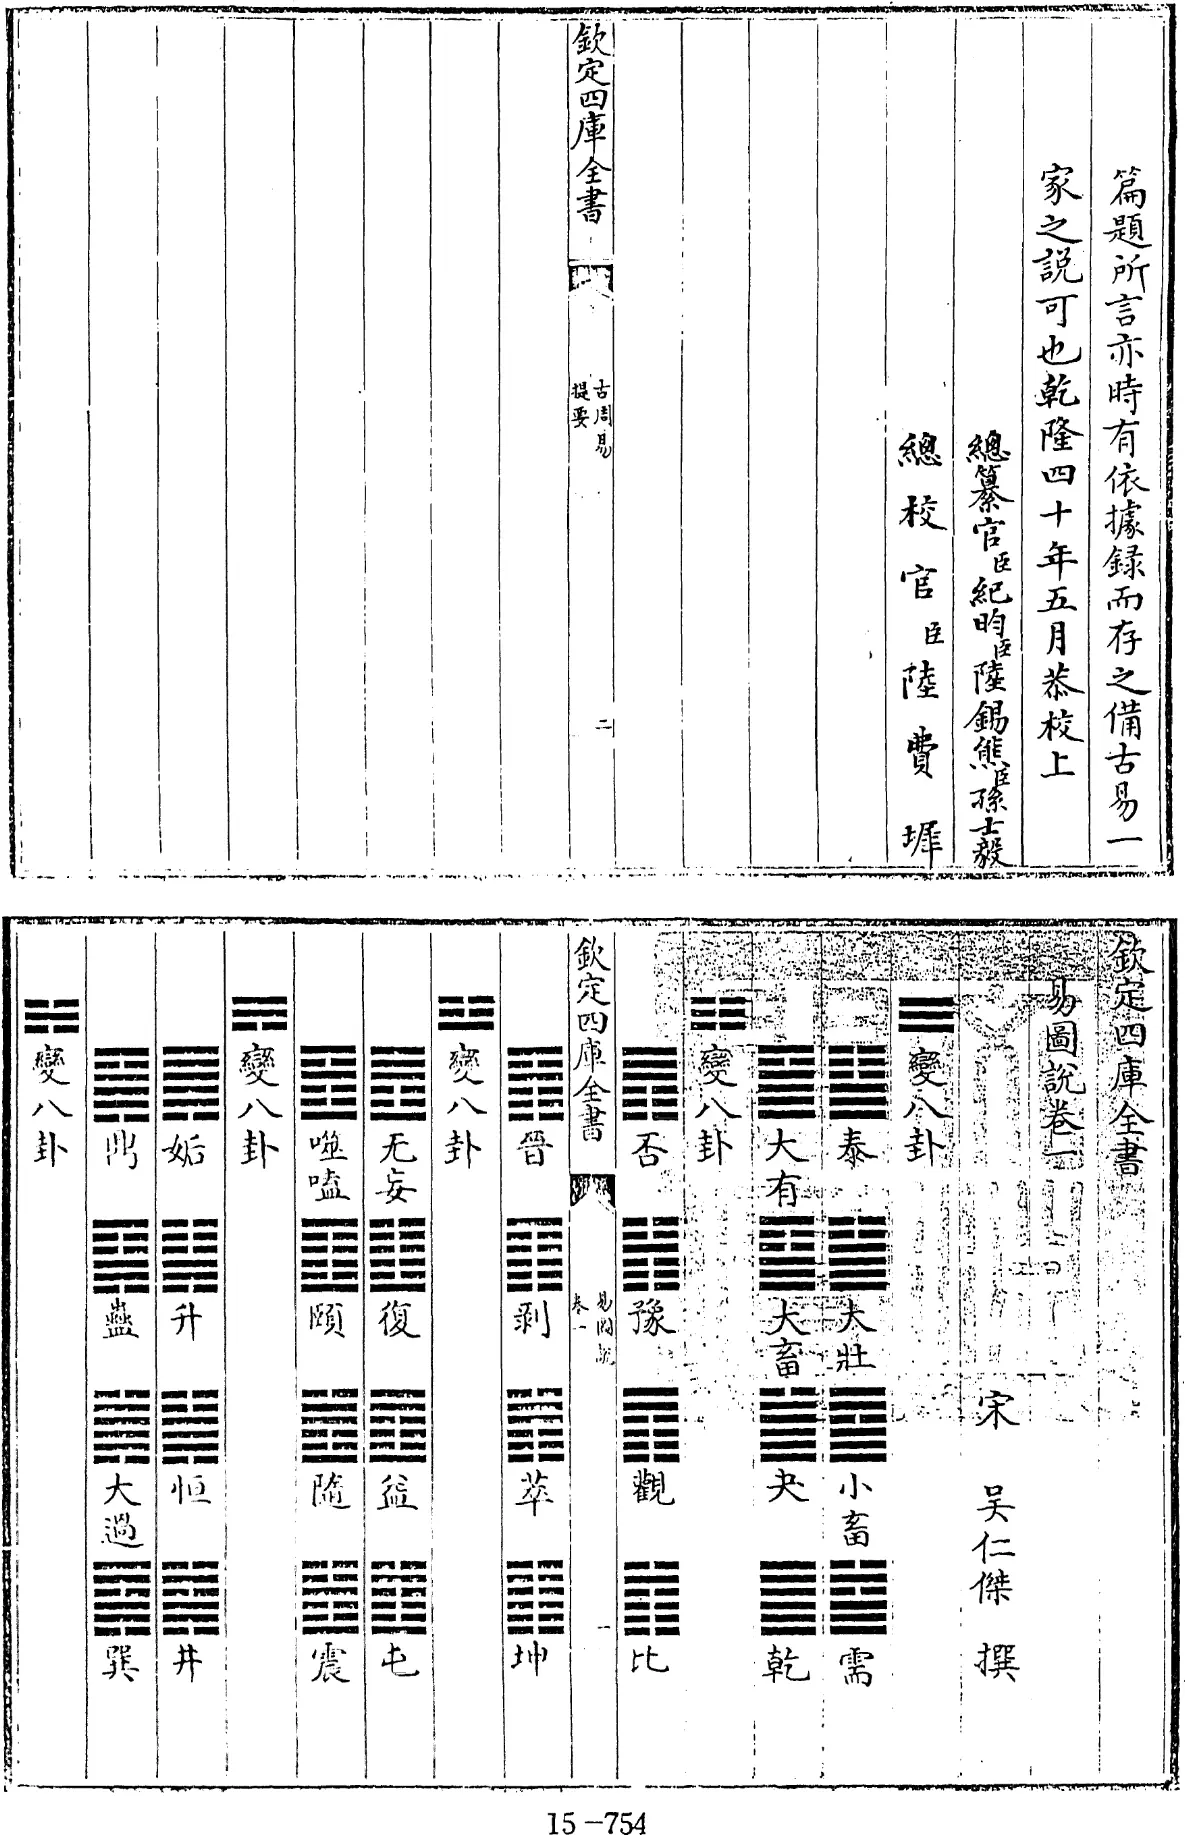 篇題所言亦時有依據録而存之備古易一
家之説可也乾隆四十年五月恭校上
總纂官臣紀昀臣陸錫熊臣孫士毅
總校官臣陸費墀
欽定四庫全書
古周易
提要
二
欽定四庫全書
易圖說卷一
宋 吴仁傑 撰
變八卦
泰 大壯 小畜 需
大有 大畜 夬 乾
變八卦
否 豫 觀 比
欽定四庫全書
易圖說
卷一
一
晉 剥 萃 坤
變八卦
无妄 復 益 屯
噬嗑 頤 隨 震
變八卦
姤 升 恒 井
鼎 蠱 大過 巽
變八卦
15-754